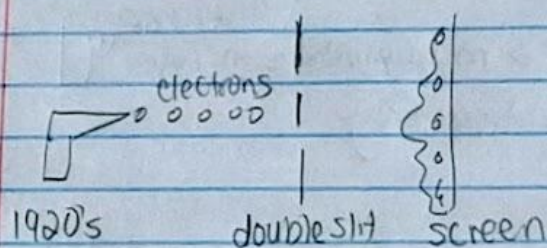 electrons
1920's double slit screen